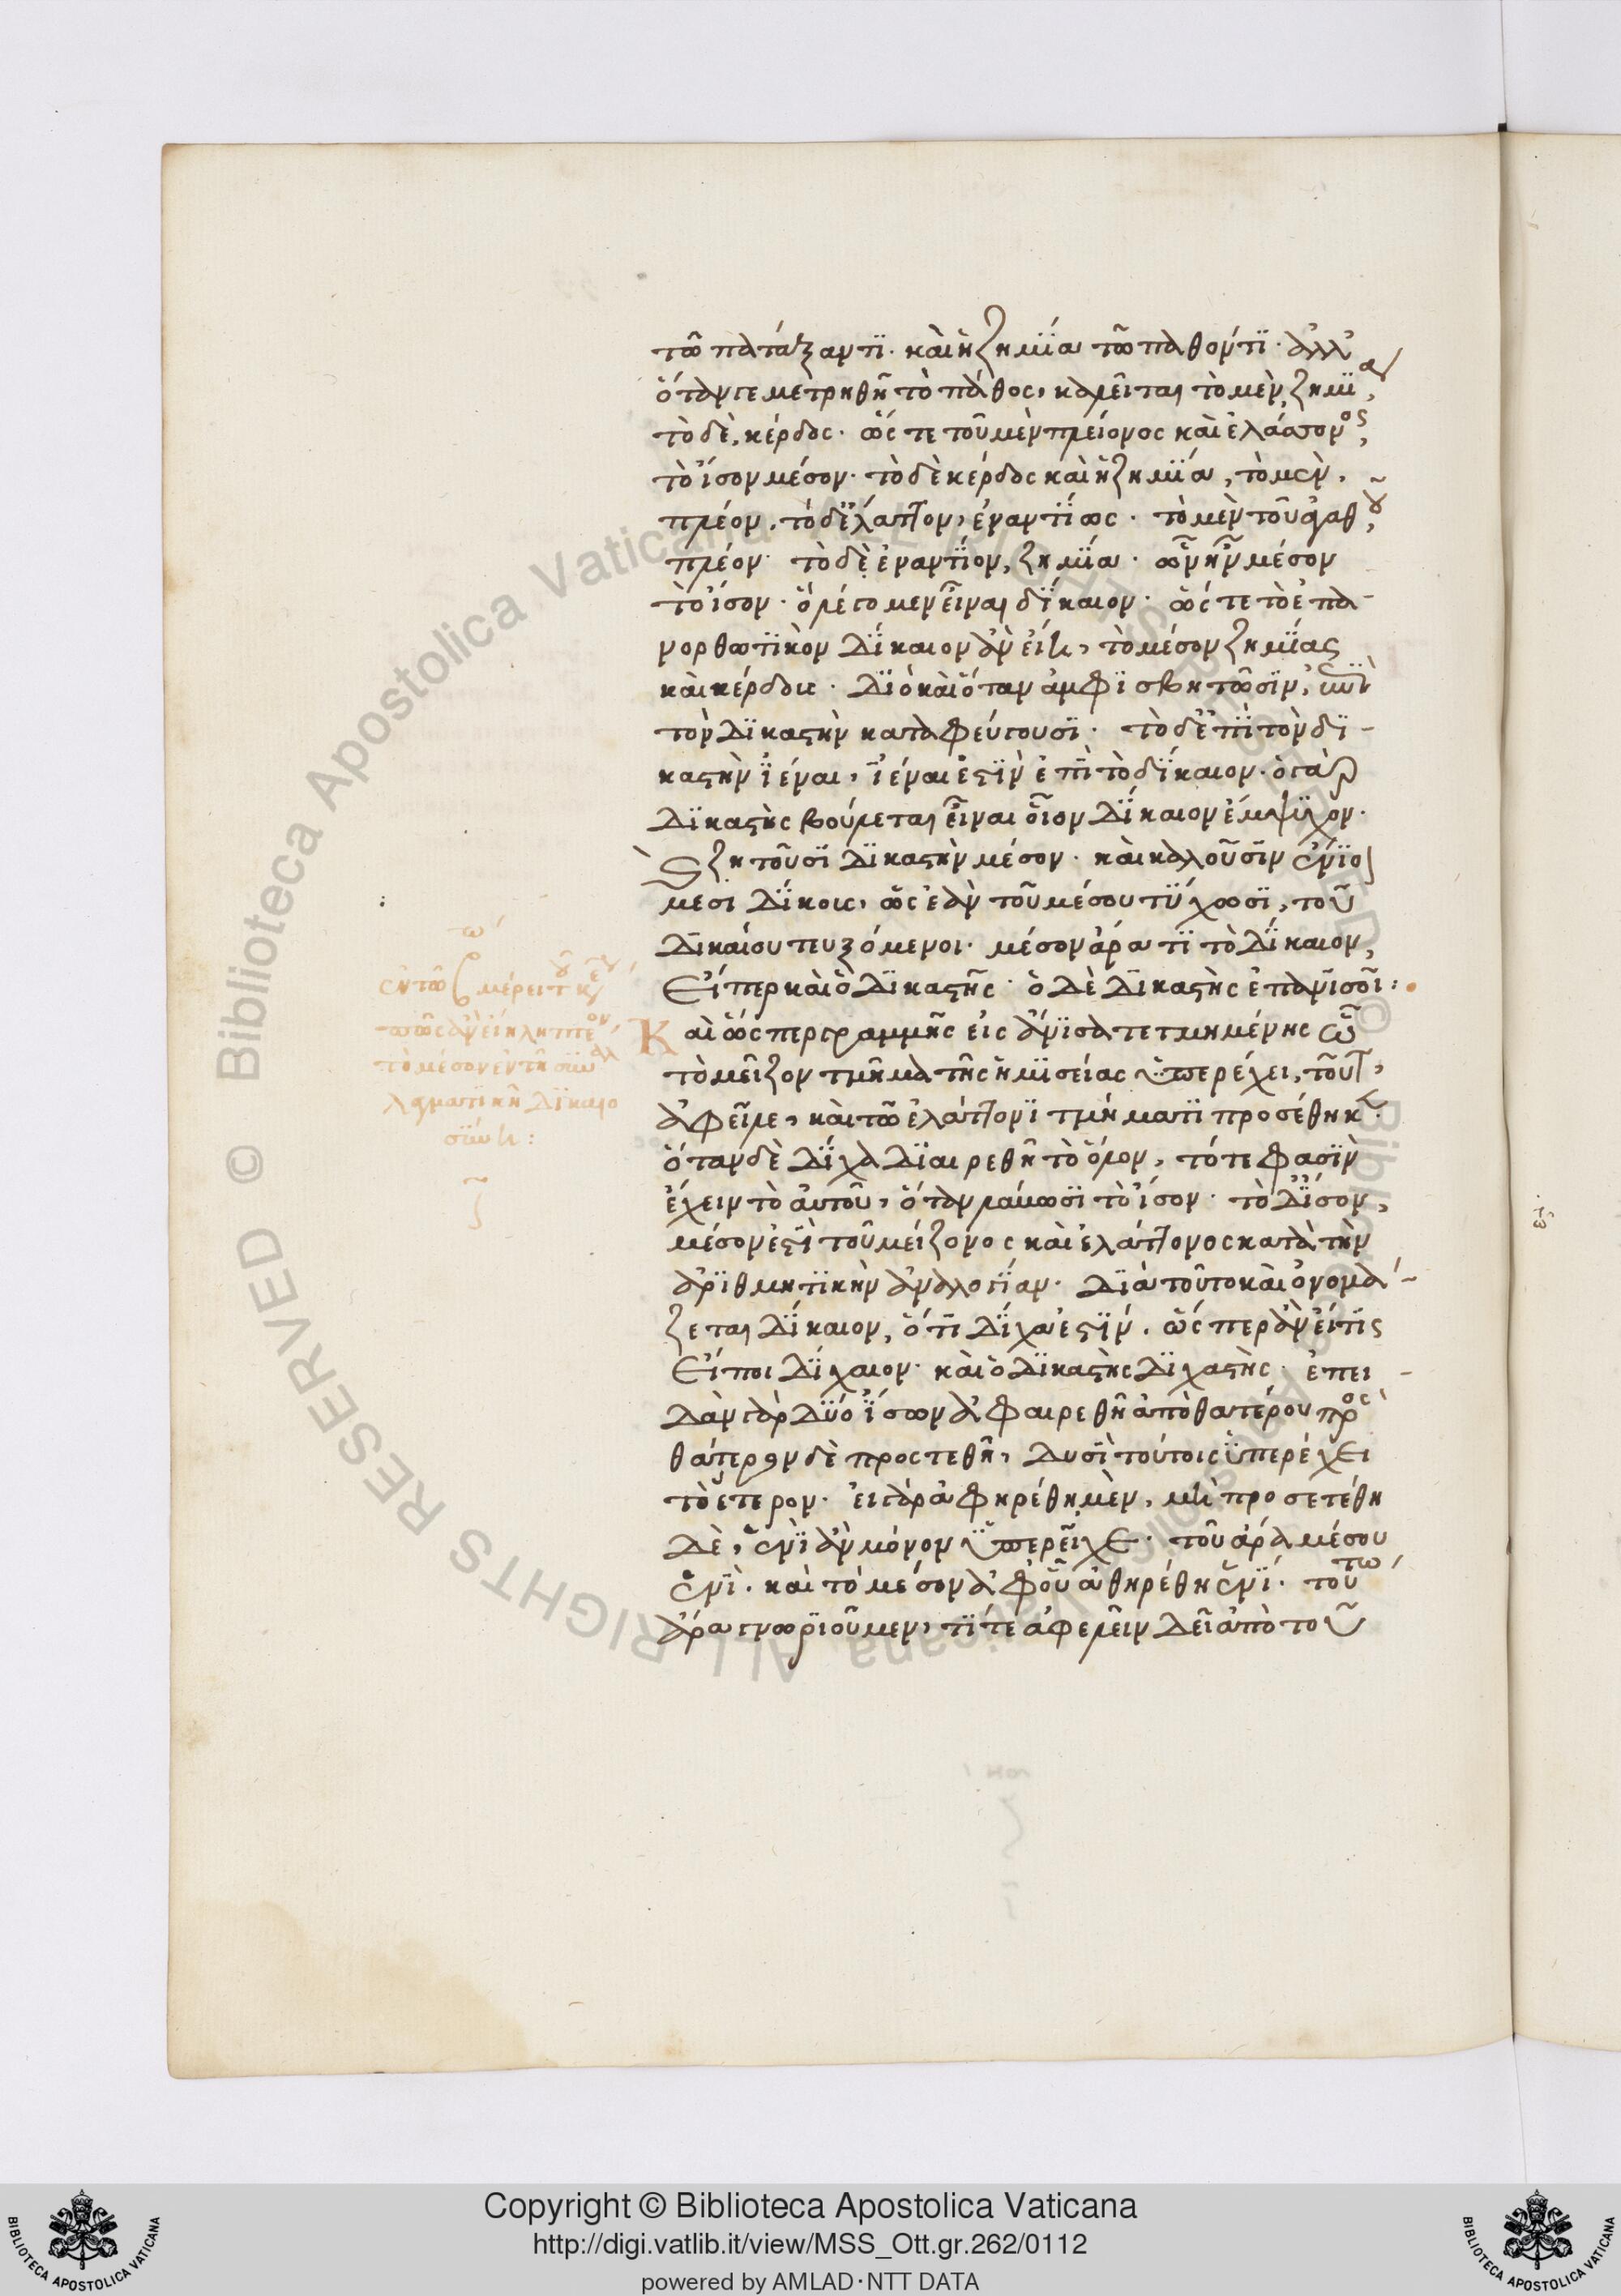 τῶ πατάξαντι· καὶ ἡ ζημία τῶ παθόντι· ἀλλ'
ὅταν γε μετρηθῆ τὸ πάθος, καλεῖται τὸ μὲν, ζημία,
τὸ δὲ, κέρδος· ὥς τε τοῦ μὲν πλείονος καὶ ἐλάσσονος,
τὸ ἴσον μέσον· τὸ δὲ κέρδος καὶ ἡ ζημία, τὸ μὲν,
πλέον, τὸ δ' ἔλαττον, ἐναντίως· τὸ μὲν τοῦ ἀγαθοῦ,
πλέον· τὸ δὲ ἐναντίον, ζημία· ὧν ἦν μέσον
τὸ ἴσον· ὃ λέγομεν εἶναι δίκαιον· ὥς τε τὸ ἐπα-
νορθωτικὸν δίκαιον ἂν εἴη, τὸ μέσον ζημίας
καὶ κέρδους· διὸ καὶ ὅταν ἀμφισβητῶσιν, ἐπὶ
τὸν δικαστὴν καταφεύγουσι· τὸ δ' ἐπὶ τὸν δι-
καστὴν ἰέναι, ἰέναι ἐστὶν ἐπὶ τὸ δίκαιον· ὁ γὰρ
δικαστὴς βούλεται εἶναι οἷον δίκαιον ἔμψυχον·
καὶ ζητοῦσι δικαστὴν μέσον· καὶ καλοῦσιν ἔνιοι
μεσιδίκους, ὡς ἐὰν τοῦ μέσου τύχωσι, τοῦ
δικαίου τευξόμενοι· μέσον ἄρα τι τὸ δίκαιον,
εἴπερ καὶ ὁ δικαστής· ὁ δὲ δικαστὴς ἐπανισοῖ:
Καὶ ὥσπερ γραμμῆς εἰς ἄνισα τετμημένης ὧ
τὸ μεῖζον τμῆμα τῆς ἡμισείας ὑπερέχει, τοῦτ',
ἀφεῖλε, καὶ τῶ ἐλάττονι τμήματι προσέθηκεν·
ὅταν δὲ δίχα διαιρεθῆ τὸ ὅλον, τότε φασὶν
ἔχειν τὸ αὑτοῦ, ὅταν λάβωσι τὸ ἴσον· τὸ δ' ἴσον,
μέσον ἐστὶ τοῦ μείζονος καὶ ἐλάττονος κατὰ τὴν
ἀριθμητικὴν ἀναλογίαν· διὰ τοῦτο καὶ ὀνομά-
ζεται δίκαιον, ὅτι δίχα ἐστίν· ὥς περ ἂν εἴ τις
εἴποι δίχαιον· καὶ ὁ δικαστὴς διχαστής· ἐπει-
δὰν γὰρ δύο ἴσων ἀφαιρεθῆ ἀπὸ θατέρου πρὸς
θάτερον δὲ προστεθῆ, δυσὶ τούτοις ὑπερέχει
τὸ ἕτερον· εἰ γὰρ ἀφηρέθη μὲν, μὴ προσετέθη
δὲ, ἑνὶ ἂν μόνον ὑπερεῖχε· τοῦ ἄρα μέσου
ἑνὶ· καὶ τὸ μέσον ἀφ' οὗ ἀφηρέθη ἑνί· τούτω
ἄρα γνωριοῦμεν, τί τε ἀφελεῖν δεῖ ἀπὸ τοῦ
τὸ μέσον ἐν τῆ συναλ
λαγματικῆ δικαιο
σύνη:
Copyright © Biblioteca Apostolica Vaticana
http://digi.vatlib.it/view/MSS_Ott.gr.262/0112
powered by AMLAD·NTT DATA
BIBLIOTECA APOSTOLICA VATICANA
BIBLIOTECA APOSTOLICA VATICANA
© Biblioteca Apostolica Vaticana ALL RIGHTS RESERVED